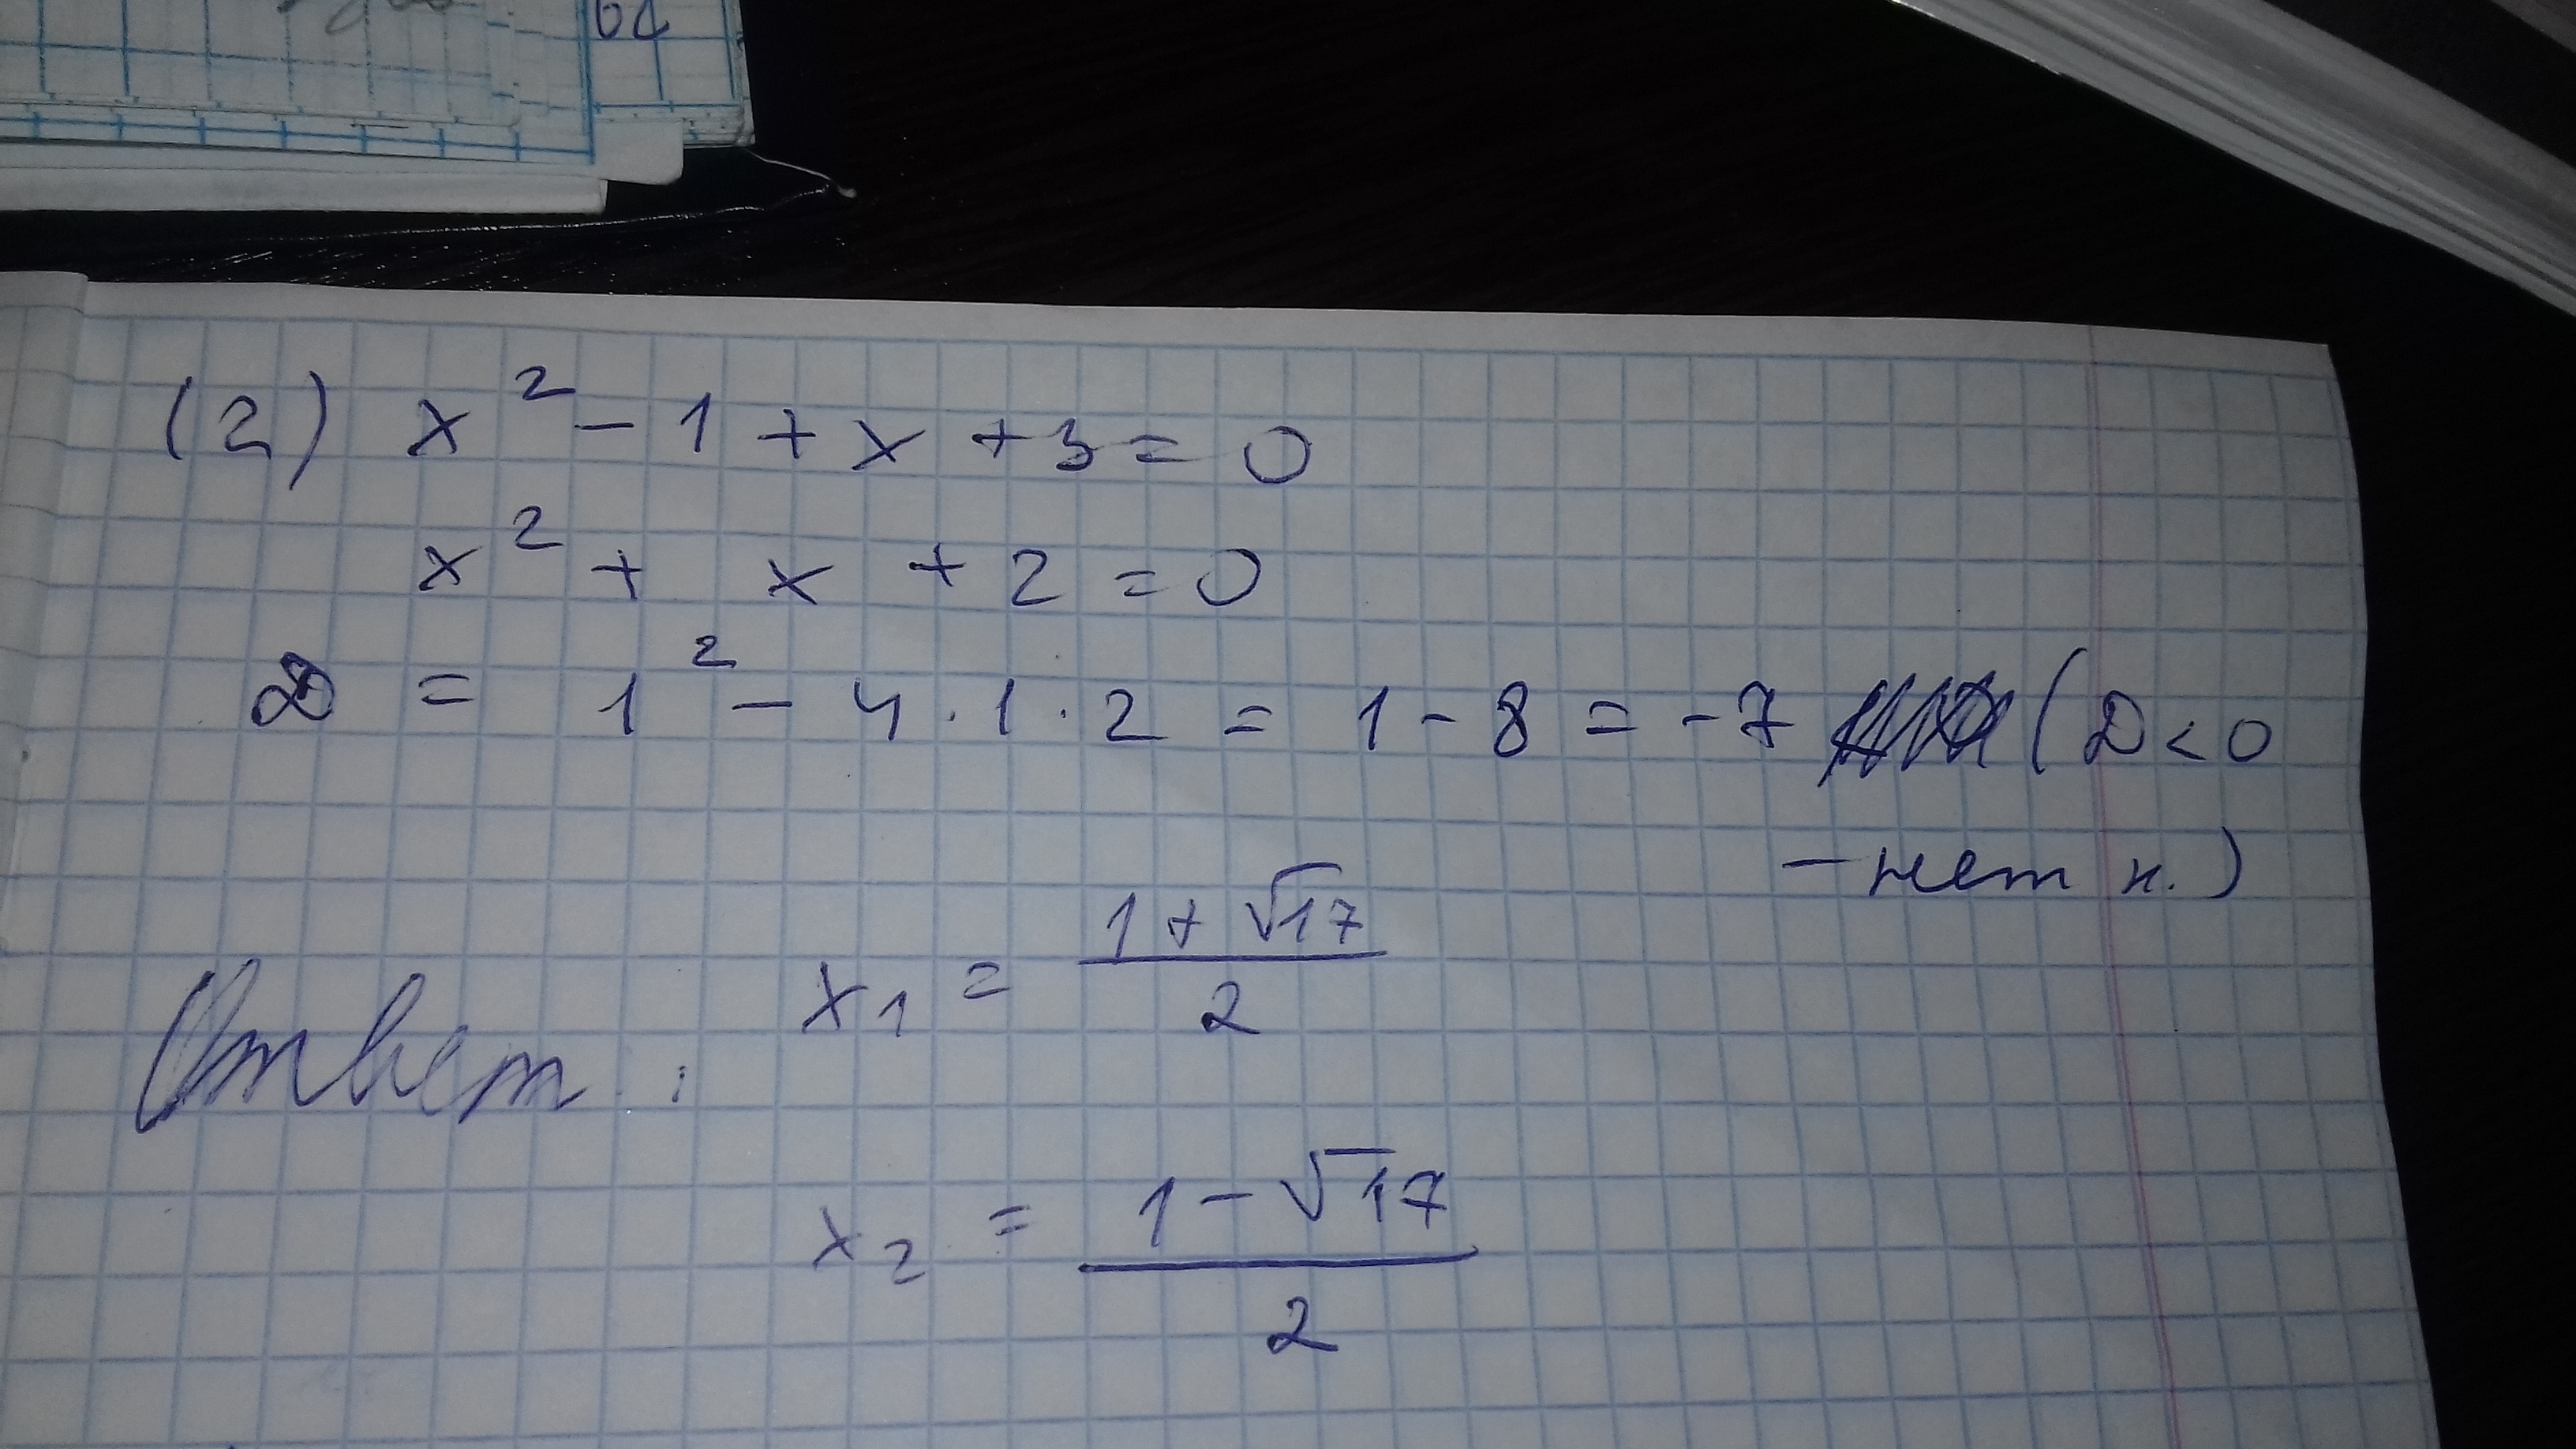 (2) x² - 1 + x + 3 = 0
x² + x + 2 = 0
D = 1² - 4 · 1 · 2 = 1 - 8 = -7 (D < 0
- нет к.)
Ответ: x₁ = (1 + √17)/2
x₂ = (1 - √17)/2